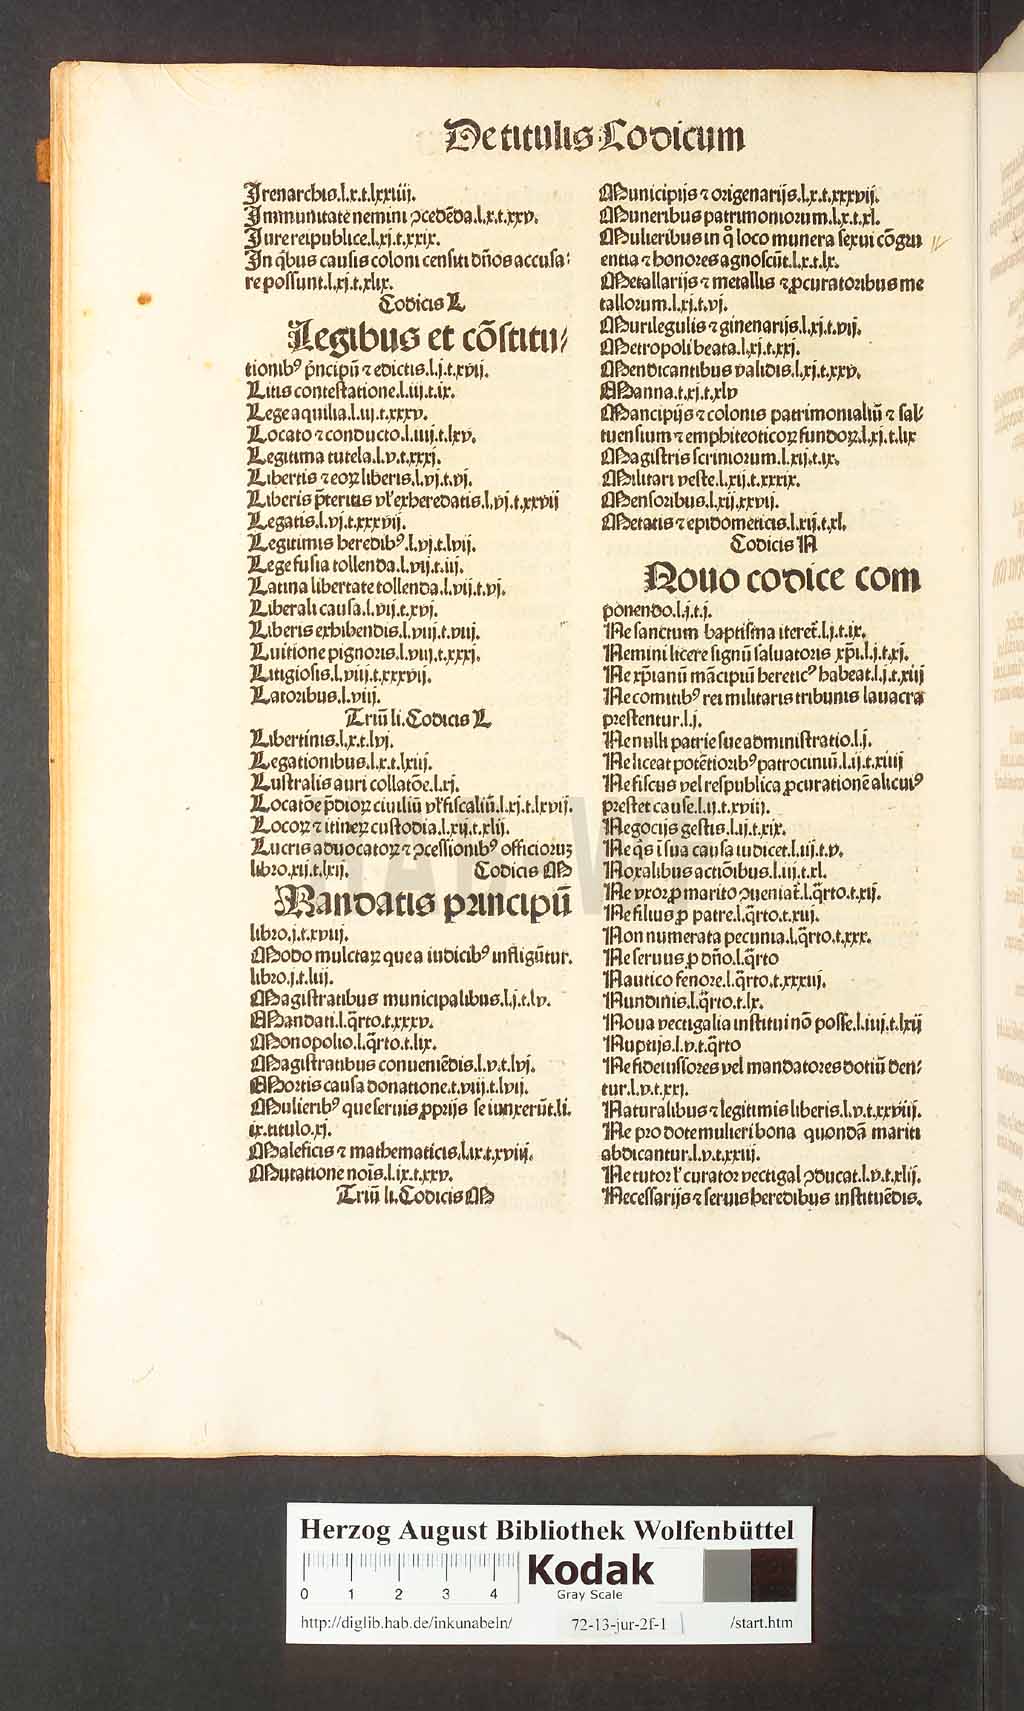 De titulis Codicum
Irenarchis.l.x.t.lxxiiij.
Immunitatē nemini ꝯcedēda.l.x.t.xxv.
Iure reipublice.l.xj.t.xxix.
In q̄bus causis coloni censiti dn̄os accusa⸗
re possunt.l.xj.t.xlix.
Codicis L
Legibus et cōstitu⸗
tionibꝰ pn̄cipū ⁊ edictis.l.j.t.xvij.
Litis contestatione.l.iij.t.ix.
Lege aquilia.l.iij.t.xxxv.
Locato ⁊ conducto.l.iiij.t.lxv.
Legitima tutela.l.v.t.xxxj.
Libertis ⁊ eoꝝ liberis.l.vj.t.vj.
Liberis p̄teritis vl' exheredatis.l.vj.t.xxvij
Legatis.l.vj.t.xxxvij.
Legitimis heredibꝰ.l.vj.t.lvij.
Lege fusia tollenda.l.vij.t.iij.
Latina libertate tollenda.l.vij.t.vj.
Liberali causa.l.vij.t.xvj.
Liberis exhibendis.l.viij.t.viij.
Luitione pignoris.l.viij.t.xxxj.
Litigiosis.l.viij.t.xxxvij.
Latoribus.l.viij.
Triū li. Codicis L
Libertinis.l.x.t.lvj.
Legationibus.l.x.t.lxiij.
Lustralis auri collatōe.l.xj.
Locatōe p̄dioꝝ ciuiliū vl' fiscaliū.l.xj.t.lxvij.
Locoꝝ ⁊ itineꝝ custodia.l.xij.t.xlij.
Lucris aduocatoꝝ ⁊ ꝯcessionibꝰ officioruꝫ
libro.xij.t.lxij. Codicis M
Mandatis principū
libro.j.t.xviij.
Modo mulctaꝝ que a iudicibꝰ infligūtur.
libro.j.t.liij.
Magistratibus municipalibus.l.j.t.lv.
Mandati.l.q̄rto.t.xxxv.
Monopolio.l.q̄rto.t.lix.
Magistratibus conueniēdis.l.v.t.lvj.
Mortis causa donatione.t.viij.t.lvij.
Mulieribꝰ que seruis ꝓprijs se iunxerūt.li.
ix.titulo.xj.
Maleficis ⁊ mathematicis.l.ix.t.xviij.
Mutatione nois̄.l.ix.t.xxv.
Triū li. Codicis M
Municipijs ⁊ origenarijs.l.x.t.xxxvij.
Muneribus patrimoniorum.l.x.t.xl.
Mulieribus in q̊ loco munera sexui cōgru
entia ⁊ honores agnoscūt.l.x.t.lx.
Metallarijs ⁊ metallis ⁊ ꝓcuratoribus me
tallorum.l.xj.t.vj.
Murilegulis ⁊ ginenarijs.l.xj.t.vij.
Metropoli beata.l.xj.t.xxj.
Mendicantibus validis.l.xj.t.xxv.
Manna.t.xj.t.xlv
Mancipijs ⁊ colonis patrimonialiū ⁊ sal⸗
tuensium ⁊ emphiteoticoꝝ fundoꝝ.l.xj.t.lix
Magistris scriniorum.l.xij.t.ix.
Militari veste.l.xij.t.xxxix.
Mensoribus.l.xij.xxvij.
Metatis ⁊ epidometicis.l.xij.t.xl.
Codicis N
Nouo codice com
ponendo.l.j.t.j.
Ne sanctum baptisma iteret̄.l.j.t.ix.
Nemini licere signū saluatoris xp̄i.l.j.t.xj.
Ne xp̄ianū mācipiū hereticꝰ habeat.l.j.t.xiij
Ne comitibꝰ rei militaris tribunis lauacra
prestentur.l.j.
Ne nulli patrie sue administratio.l.j.
Ne liceat potētioribꝰ patrocinuū.l.ij.t.xiiij
Ne fiscus vel respublica ꝓcurationē alicuiꝰ
prestet cause.l.ij.t.xviij.
Negocijs gestis.l.ij.t.xix.
Ne q̄s ī sua causa iudicet.l.iij.t.v.
Noxalibus actiōibus.l.iij.t.xl.
Ne vxor ꝓ marito ꝯueniat̄.l.q̄rto.t.xij.
Ne filius ꝓ patre.l.q̄rto.t.xiij.
Non numerata pecunia.l.q̄rto.t.xxx.
Ne seruus ꝓ dn̄o.l.q̄rto
Nautico fenore.l.q̄rto.t.xxxiij.
Nundinis.l.q̄rto.t.lx.
Noua vectigalia institui nō posse.l.iiij.t.lxij
Nuptijs.l.v.t.q̄rto
Ne fideiussores vel mandatores dotiū den⸗
tur.l.v.t.xxj.
Naturalibus ⁊ legitimis liberis.l.v.t.xxviij.
Ne pro dote mulieri bona quondā mariti
abdicantur.l.v.t.xxiij.
Ne tutor l' curator vectigal ꝯducat.l.v.t.xlij.
Necessarijs ⁊ seruis heredibus instituēdis.
Herzog August Bibliothek Wolfenbüttel
0 1 2 3 4
Kodak
Gray Scale
http://diglib.hab.de/inkunabeln/ 72-13-jur-2f-1 /start.htm